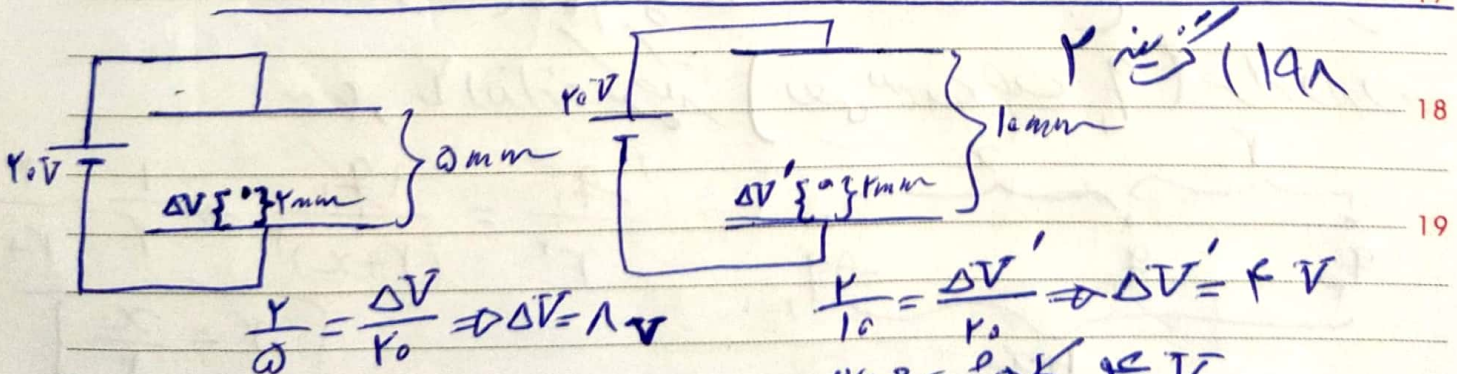 ۱۹۸) گزینه ۲
۲۰V
ΔV { } ۲mm
۵mm
۲۰V
ΔV' { } ۲mm
۱۰mm
18
19
۲/۵ = ΔV/۲۰ ⇒ ΔV = ۸ V
۲/۱۰ = ΔV'/۲۰ ⇒ ΔV' = ۴ V